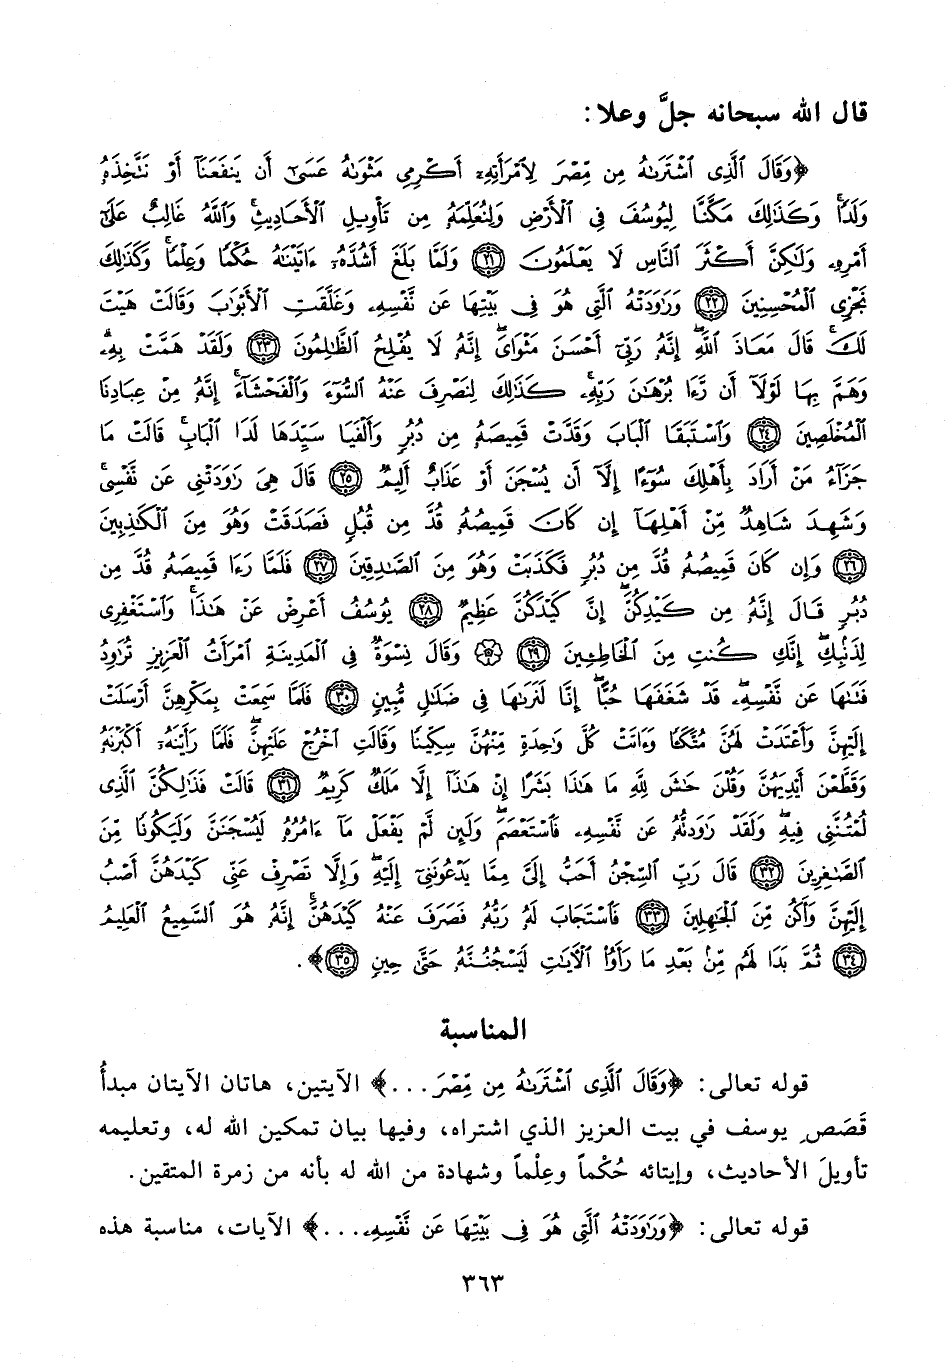 قال الله سبحانه جلَّ وعلا:
﴿وَقَالَ ٱلَّذِى ٱشْتَرَىٰهُ مِن مِّصْرَ لِٱمْرَأَتِهِۦٓ أَكْرِمِى مَثْوَىٰهُ عَسَىٰٓ أَن يَنفَعَنَآ أَوْ نَتَّخِذَهُۥ
وَلَدًا ۚ وَكَذَٰلِكَ مَكَّنَّا لِيُوسُفَ فِى ٱلْأَرْضِ وَلِنُعَلِّمَهُۥ مِن تَأْوِيلِ ٱلْأَحَادِيثِ ۚ وَٱللَّهُ غَالِبٌ عَلَىٰٓ
أَمْرِهِۦ وَلَٰكِنَّ أَكْثَرَ ٱلنَّاسِ لَا يَعْلَمُونَ ٢١ وَلَمَّا بَلَغَ أَشُدَّهُۥٓ ءَاتَيْنَٰهُ حُكْمًا وَعِلْمًا ۚ وَكَذَٰلِكَ
نَجْزِى ٱلْمُحْسِنِينَ ٢٢ وَرَٰوَدَتْهُ ٱلَّتِى هُوَ فِى بَيْتِهَا عَن نَّفْسِهِۦ وَغَلَّقَتِ ٱلْأَبْوَٰبَ وَقَالَتْ هَيْتَ
لَكَ ۚ قَالَ مَعَاذَ ٱللَّهِ ۖ إِنَّهُۥ رَبِّىٓ أَحْسَنَ مَثْوَاىَ ۖ إِنَّهُۥ لَا يُفْلِحُ ٱلظَّٰلِمُونَ ٢٣ وَلَقَدْ هَمَّتْ بِهِۦ ۖ
وَهَمَّ بِهَا لَوْلَآ أَن رَّءَا بُرْهَٰنَ رَبِّهِۦ ۚ كَذَٰلِكَ لِنَصْرِفَ عَنْهُ ٱلسُّوٓءَ وَٱلْفَحْشَآءَ ۚ إِنَّهُۥ مِنْ عِبَادِنَا
ٱلْمُخْلَصِينَ ٢٤ وَٱسْتَبَقَا ٱلْبَابَ وَقَدَّتْ قَمِيصَهُۥ مِن دُبُرٍ وَأَلْفَيَا سَيِّدَهَا لَدَا ٱلْبَابِ ۚ قَالَتْ مَا
جَزَآءُ مَنْ أَرَادَ بِأَهْلِكَ سُوٓءًا إِلَّآ أَن يُسْجَنَ أَوْ عَذَابٌ أَلِيمٌ ٢٥ قَالَ هِىَ رَٰوَدَتْنِى عَن نَّفْسِى ۚ
وَشَهِدَ شَاهِدٌ مِّنْ أَهْلِهَآ إِن كَانَ قَمِيصُهُۥ قُدَّ مِن قُبُلٍ فَصَدَقَتْ وَهُوَ مِنَ ٱلْكَٰذِبِينَ
٢٦ وَإِن كَانَ قَمِيصُهُۥ قُدَّ مِن دُبُرٍ فَكَذَبَتْ وَهُوَ مِنَ ٱلصَّٰدِقِينَ ٢٧ فَلَمَّا رَءَا قَمِيصَهُۥ قُدَّ مِن
دُبُرٍ قَالَ إِنَّهُۥ مِن كَيْدِكُنَّ ۖ إِنَّ كَيْدَكُنَّ عَظِيمٌ ٢٨ يُوسُفُ أَعْرِضْ عَنْ هَٰذَا ۚ وَٱسْتَغْفِرِى
لِذَنۢبِكِ ۖ إِنَّكِ كُنتِ مِنَ ٱلْخَاطِـِٔينَ ٢٩ ۞ وَقَالَ نِسْوَةٌ فِى ٱلْمَدِينَةِ ٱمْرَأَتُ ٱلْعَزِيزِ تُرَٰوِدُ
فَتَىٰهَا عَن نَّفْسِهِۦ ۖ قَدْ شَغَفَهَا حُبًّا ۖ إِنَّا لَنَرَىٰهَا فِى ضَلَٰلٍ مُّبِينٍ ٣٠ فَلَمَّا سَمِعَتْ بِمَكْرِهِنَّ أَرْسَلَتْ
إِلَيْهِنَّ وَأَعْتَدَتْ لَهُنَّ مُتَّكَـًٔا وَءَاتَتْ كُلَّ وَٰحِدَةٍ مِّنْهُنَّ سِكِّينًا وَقَالَتِ ٱخْرُجْ عَلَيْهِنَّ ۖ فَلَمَّا رَأَيْنَهُۥٓ أَكْبَرْنَهُۥ
وَقَطَّعْنَ أَيْدِيَهُنَّ وَقُلْنَ حَٰشَ لِلَّهِ مَا هَٰذَا بَشَرًا إِنْ هَٰذَآ إِلَّا مَلَكٌ كَرِيمٌ ٣١ قَالَتْ فَذَٰلِكُنَّ ٱلَّذِى
لُمْتُنَّنِى فِيهِ ۖ وَلَقَدْ رَٰوَدتُّهُۥ عَن نَّفْسِهِۦ فَٱسْتَعْصَمَ ۖ وَلَئِن لَّمْ يَفْعَلْ مَآ ءَامُرُهُۥ لَيُسْجَنَنَّ وَلَيَكُونًا مِّنَ
ٱلصَّٰغِرِينَ ٣٢ قَالَ رَبِّ ٱلسِّجْنُ أَحَبُّ إِلَىَّ مِمَّا يَدْعُونَنِىٓ إِلَيْهِ ۖ وَإِلَّا تَصْرِفْ عَنِّى كَيْدَهُنَّ أَصْبُ
إِلَيْهِنَّ وَأَكُن مِّنَ ٱلْجَٰهِلِينَ ٣٣ فَٱسْتَجَابَ لَهُۥ رَبُّهُۥ فَصَرَفَ عَنْهُ كَيْدَهُنَّ ۚ إِنَّهُۥ هُوَ ٱلسَّمِيعُ ٱلْعَلِيمُ
٣٤ ثُمَّ بَدَا لَهُم مِّنۢ بَعْدِ مَا رَأَوُا۟ ٱلْءَايَٰتِ لَيَسْجُنُنَّهُۥ حَتَّىٰ حِينٍ ٣٥﴾.
المناسبة
قوله تعالى: ﴿وَقَالَ ٱلَّذِى ٱشْتَرَىٰهُ مِن مِّصْرَ ...﴾ الآيتين، هاتان الآيتان مبدأُ
قَصَصِ يوسف في بيت العزيز الذي اشتراه، وفيها بيان تمكين الله له، وتعليمه
تأويلَ الأحاديث، وإيتائه حُكْماً وعِلْماً وشهادة من الله له بأنه من زمرة المتقين.
قوله تعالى: ﴿وَرَٰوَدَتْهُ ٱلَّتِى هُوَ فِى بَيْتِهَا عَن نَّفْسِهِۦ ...﴾ الآيات، مناسبة هذه
٣٦٣